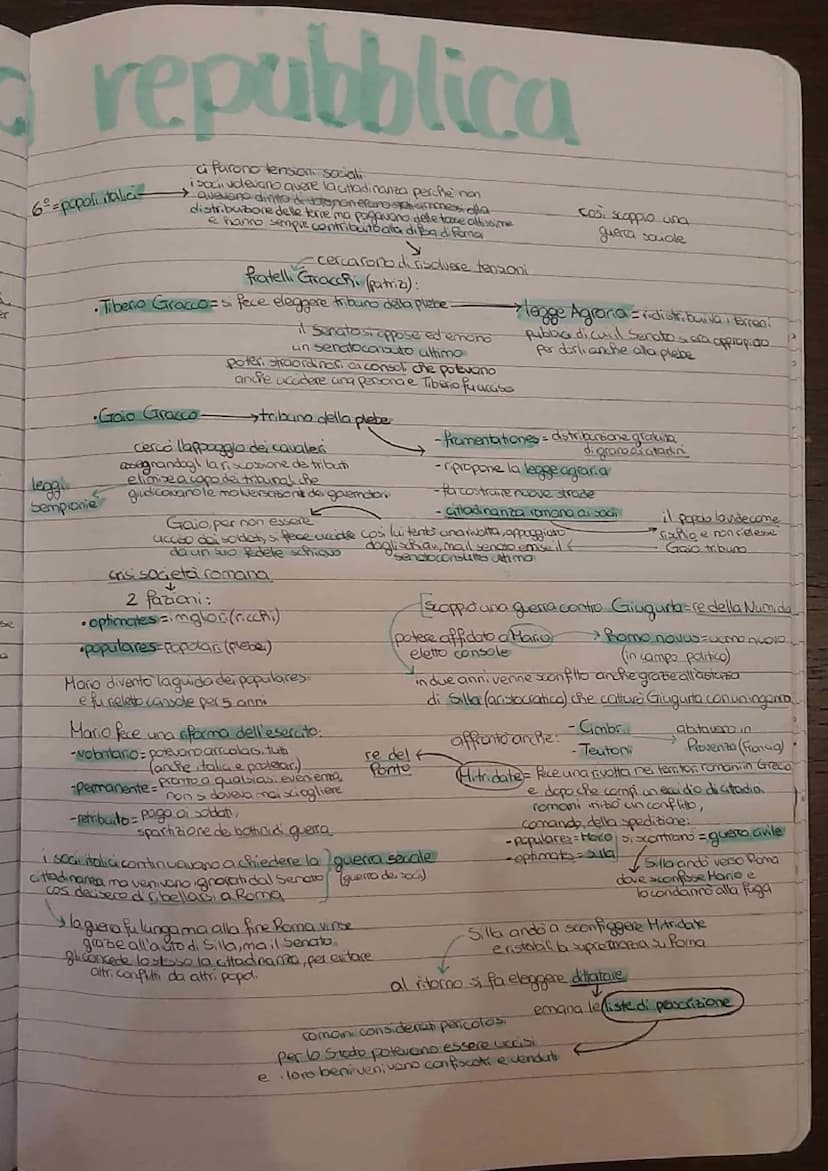 repubblica
ci furono tensioni sociali
6° = popoli italici → i soci volevano avere la cittadinanza perchè non
avevano diritto di voto non erano ammessi alla
distribuzione delle terre ma pagavano delle tasse altissime
e hanno sempre contribuito alla difesa di Roma
così scoppio una
guerra sociale
cercarono di risolvere tensioni
fratelli Gracchi (patrizi):
• Tiberio Gracco = si fece eleggere tribuno della plebe → legge Agraria = ridistribuiva i terreni
pubblici di cui il Senato si era appropiato
per darli anche alla plebe
il Senato si oppose ed emanò
un senatoconsulto ultimo
poteri straordinari ai consoli che potevano
anche uccidere una persona e Tiberio fu ucciso
• Gaio Gracco → tribuno della plebe
- frumentationes = distribuzione gratuita
di grano ai cittadini
- ripropone la legge agraria
- fa costruire nuove strade
- cittadinanza romana ai soci
cercò l'appoggio dei cavalieri
assegnandogli la riscossione dei tributi
e li mise a capo dei tribunali che
giudicavano le malversazioni dei governatori
leggi
sempronie
il popolo la vide come
rischio e non rielesse
Gaio tribuno
così lui tentò una rivolta, appoggiato
dagli schiavi, ma il senato emise il
senatoconsulto ultimo
Gaio, per non essere
ucciso dai soldati, si fece uccidere
da un suo fedele schiavo
crisi società romana
2 fazioni:
• optimates = i migliori (ricchi)
• populares = popolari (plebei)
Mario diventò la guida dei populares
e fu rieletto console per 5 anni
scoppiò una guerra contro Giugurta = re della Numidia
potere affidato a Mario → Homo novus = uomo nuovo
eletto console (in campo politico)
in due anni venne sconfitto anche grazie all'astuzia
di Silla (aristocratico) che catturò Giugurta con un inganno
Mario fece una riforma dell'esercito:
- volontario = potevano arruolarsi tutti
(anche italici e proletari)
- permanente = pronto a qualsiasi evenienza,
non si doveva mai sciogliere
- retribuito = paga ai soldati,
spartizione dei bottini di guerra
affrontò anche: - Cimbri
- Teutoni
abitavano in
Provenza (Francia)
re del
Ponto
Mitridate = fece una rivolta nei territori romani in Grecia
e dopo che compì un eccidio di cittadini
romani iniziò un conflitto,
comando della spedizione:
- populares = Mario
- optimates = Silla
si scontrano = guerra civile
Silla andò verso Roma
dove sconfisse Mario e
lo condannò alla fuga
i soci italici continuavano a chiedere la
cittadinanza ma venivano ignorati dal Senato
così decisero di ribellarsi a Roma
guerra sociale
(guerra dei soci)
la guerra fu lunga ma alla fine Roma vinse
grazie all'aiuto di Silla, ma il Senato
gli concede lo stesso la cittadinanza, per evitare
altri conflitti da altri popoli
Silla andò a sconfiggere Mitridate
e ristabilì la supremazia su Roma
al ritorno si fa eleggere dittatore
emana le liste di proscrizione
romani considerati pericolosi
per lo Stato potevano essere uccisi
e i loro beni venivano confiscati e venduti